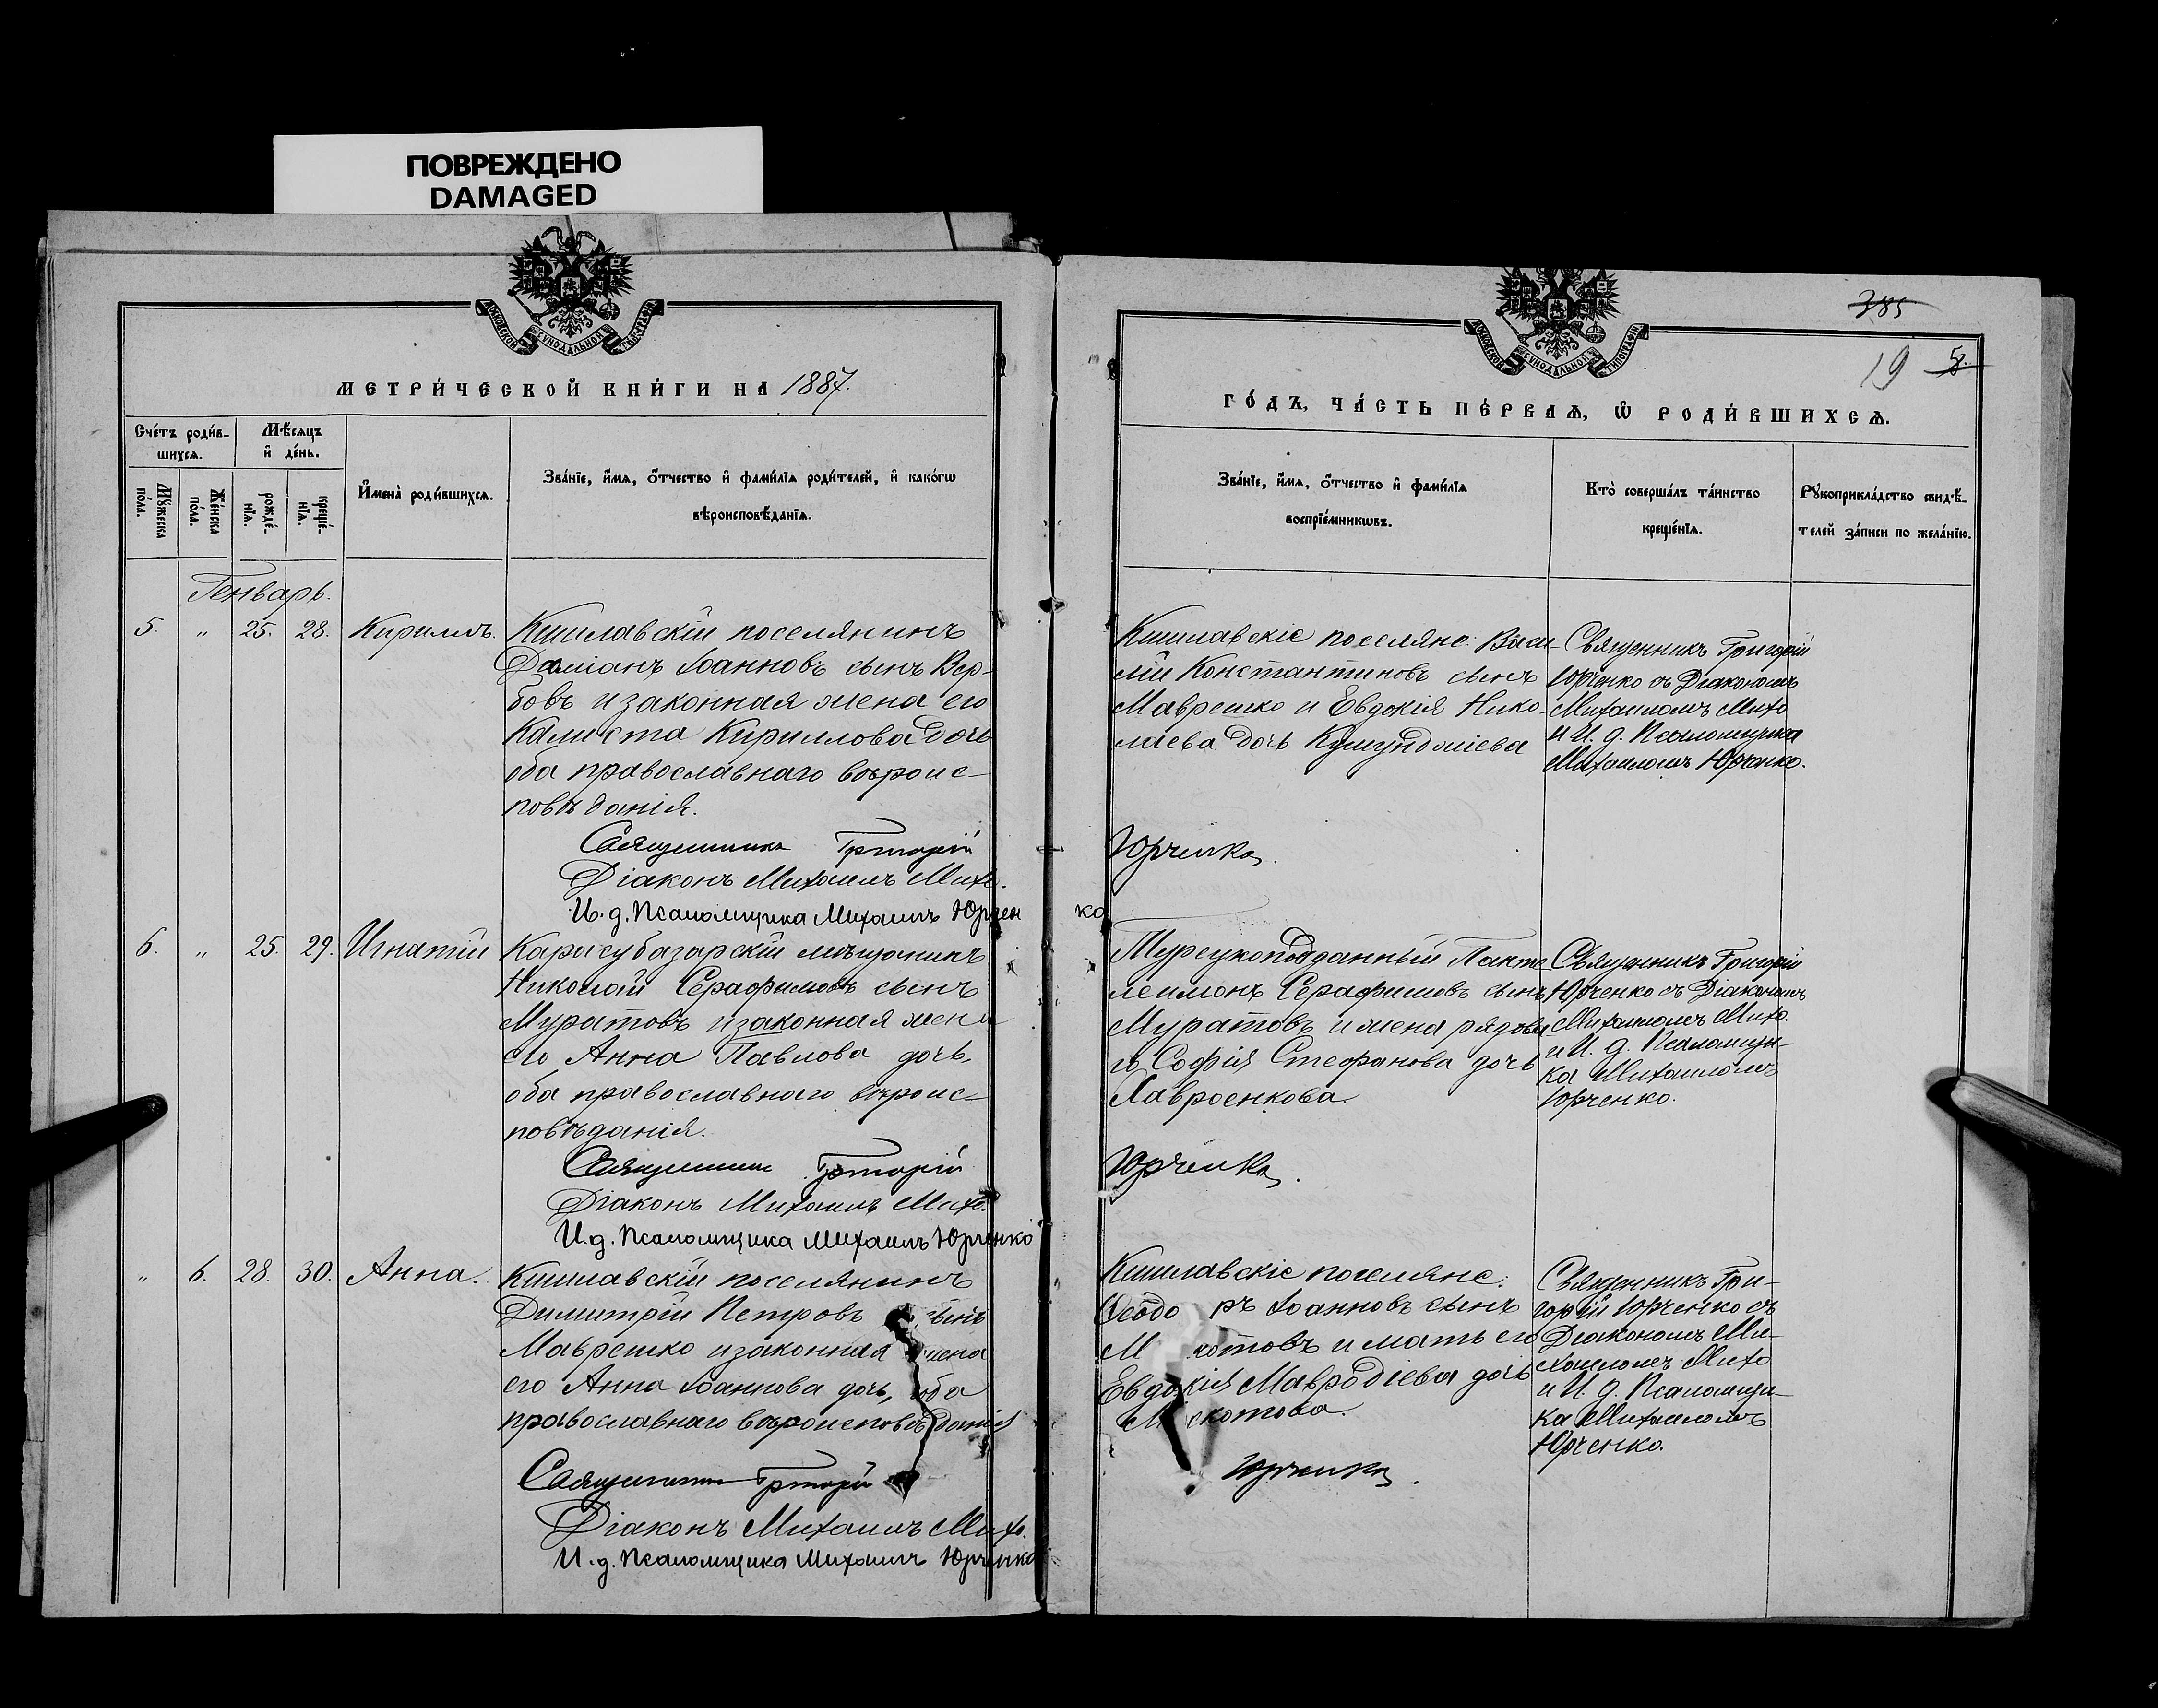 ПОВРЕЖДЕНО
DAMAGED
МОСКОВСКОЙ СѴНОДАЛЬНОЙ ТИПОГРАФІИ
МЕТРИ́ЧЕСКОЙ КНИ́ГИ НА 1887.
Сче́тъ роди́в-
шихсѧ.
Мѣ́сѧцъ
и҆ де́нь.
Мꙋ́жеска
по́ла.
Же́нска
по́ла.
рожде́-
нїѧ.
креще́-
нїѧ.
И҆мена̀ роди́вшихсѧ.
Зва́нїе, и҆́мѧ, ѻ҆́тчество и҆ фами́лїѧ роди́телей, и҆ како́гѡ
вѣроисповѣ́данїѧ.
Генварь.
5. „ 25. 28. Кириллъ.
Кишлавскій поселянинъ
Даміанъ Іоанновъ сынъ Вер-
бовъ и законная жена его
Калиста Кириллова дочь
оба православнаго вѣроис-
повѣданія.
Священникъ Григорій
Діаконъ Михаилъ Михо.
И. д. Псаломщика Михаилъ Юрчен
6. „ 25. 29. Игнатій
Карасубазарскій мѣщанинъ
Николай Серафимовъ сынъ
Муратовъ и законная жена
его Анна Павлова дочь,
оба православнаго вѣроис-
повѣданія.
Священникъ Григорій
Діаконъ Михаилъ Михо.
И. д. Псаломщика Михаилъ Юрченко
„ 6. 28. 30. Анна.
Кишлавскій поселянинъ
Димитрій Петровъ сынъ
Маврешко и законная жена
его Анна Іоаннова дочь, оба
православнаго вѣроисповѣданія
Священникъ Григорій
Діаконъ Михаилъ Михо.
И. д. Псаломщика Михаилъ Юрченко
МОСКОВСКОЙ СѴНОДАЛЬНОЙ ТИПОГРАФІИ
385
19 58.
ГО́ДЪ, ЧА́СТЬ ПЕ́РВАѦ, Ѡ҆ РОДИ́ВШИХСѦ.
Зва́нїе, и҆́мѧ, ѻ҆́тчество и҆ фами́лїѧ
воспрїе́мникѡвъ.
Кто̀ соверша́лъ та́инство
креще́нїѧ.
Рꙋкоприкла́дство свидѣ́-
телей за́писи по жела́нїю.
Кишлавскіе поселяне: Васи-
лій Константиновъ сынъ
Маврешко и Евдокія Нико-
лаева дочь
Священникъ Григорій
Юрченко съ Діакономъ
Михаиломъ Михо
и И. д. Псаломщика
Михаиломъ Юрченко.
Юрченко.
ко
Турецкоподданный Панте-
леимонъ Серафимовъ сынъ
Муратовъ и жена рядова-
го Софія Стефанова дочь
Лавроенкова.
Священникъ Григорій
Юрченко съ Діакономъ
Михаиломъ Михо.
и И. д. Псаломщи-
ка Михаиломъ
Юрченко.
Юрченко.
Кишлавскіе поселяне:
Ѳеодоръ Іоанновъ сынъ
и мать его
Евдокія Мавродіева дочь
Священникъ Гри-
горій Юрченко съ
Діакономъ Ми-
хаиломъ Михо
и И. д. Псаломщи-
ка Михаиломъ
Юрченко.
Юрченко.